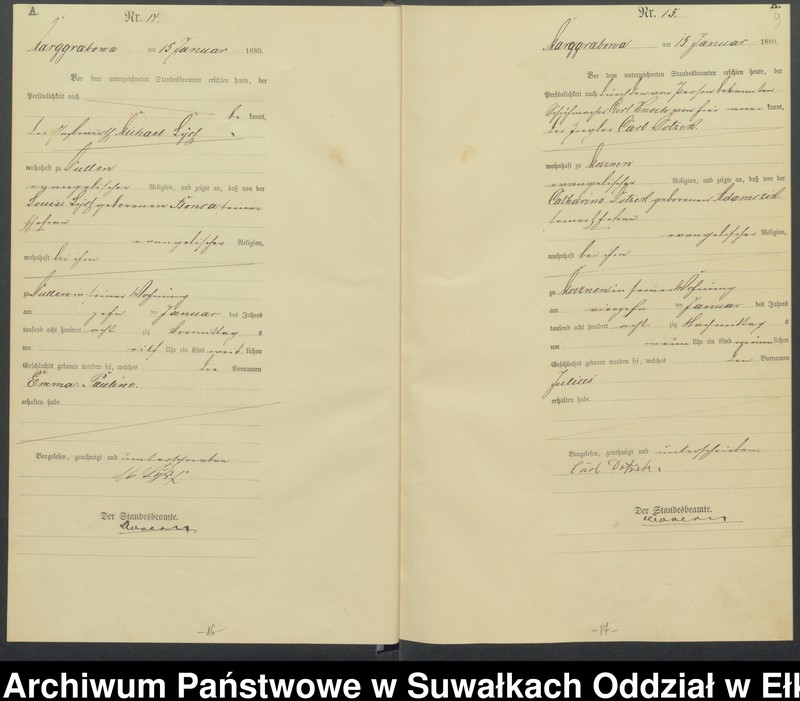 A.
Nr. 14.
Marggrabowa am 15 Januar 1880.
Vor dem unterzeichneten Standesbeamten erschien heute, der
Persönlichkeit nach
be kannt,
der Michael
wohnhaft zu
evangelischer Religion, und zeigte an, daß von der
Louise geborenen seiner
Ehefrau
evangelischer Religion,
wohnhaft bei ihm
zu in seiner Wohnung
am zehn ten Januar des Jahres
tausend acht hundert acht zig Vormittag s
um eilf Uhr ein Kind weib lichen
Geschlechts geboren worden sei, welches die Vornamen
Emma Pauline.
erhalten habe
Vorgelesen, genehmigt und unterschrieben
Der Standesbeamte.
-16-
A.
9
Nr. 15.
Marggrabowa am 15 Januar 1880.
Vor dem unterzeichneten Standesbeamten erschien heute, der
Persönlichkeit nach durch den von Person bekannten
Schuhmacher Carl von hier aner kannt,
der Carl
wohnhaft zu
evangelischer Religion, und zeigte an, daß von der
Catharina geborenen Adamczik
seiner Ehefrau
evangelischer Religion,
wohnhaft bei ihm
zu in seiner Wohnung
am vierzehn ten Januar des Jahres
tausend acht hundert acht zig Nachmittag s
um neun Uhr ein Kind männ lichen
Geschlechts geboren worden sei, welches den Vornamen
Julius
erhalten habe.
Vorgelesen, genehmigt und unterschrieben
Carl
Der Standesbeamte.
-17-
Archiwum Państwowe w Suwałkach Oddział w Ełk